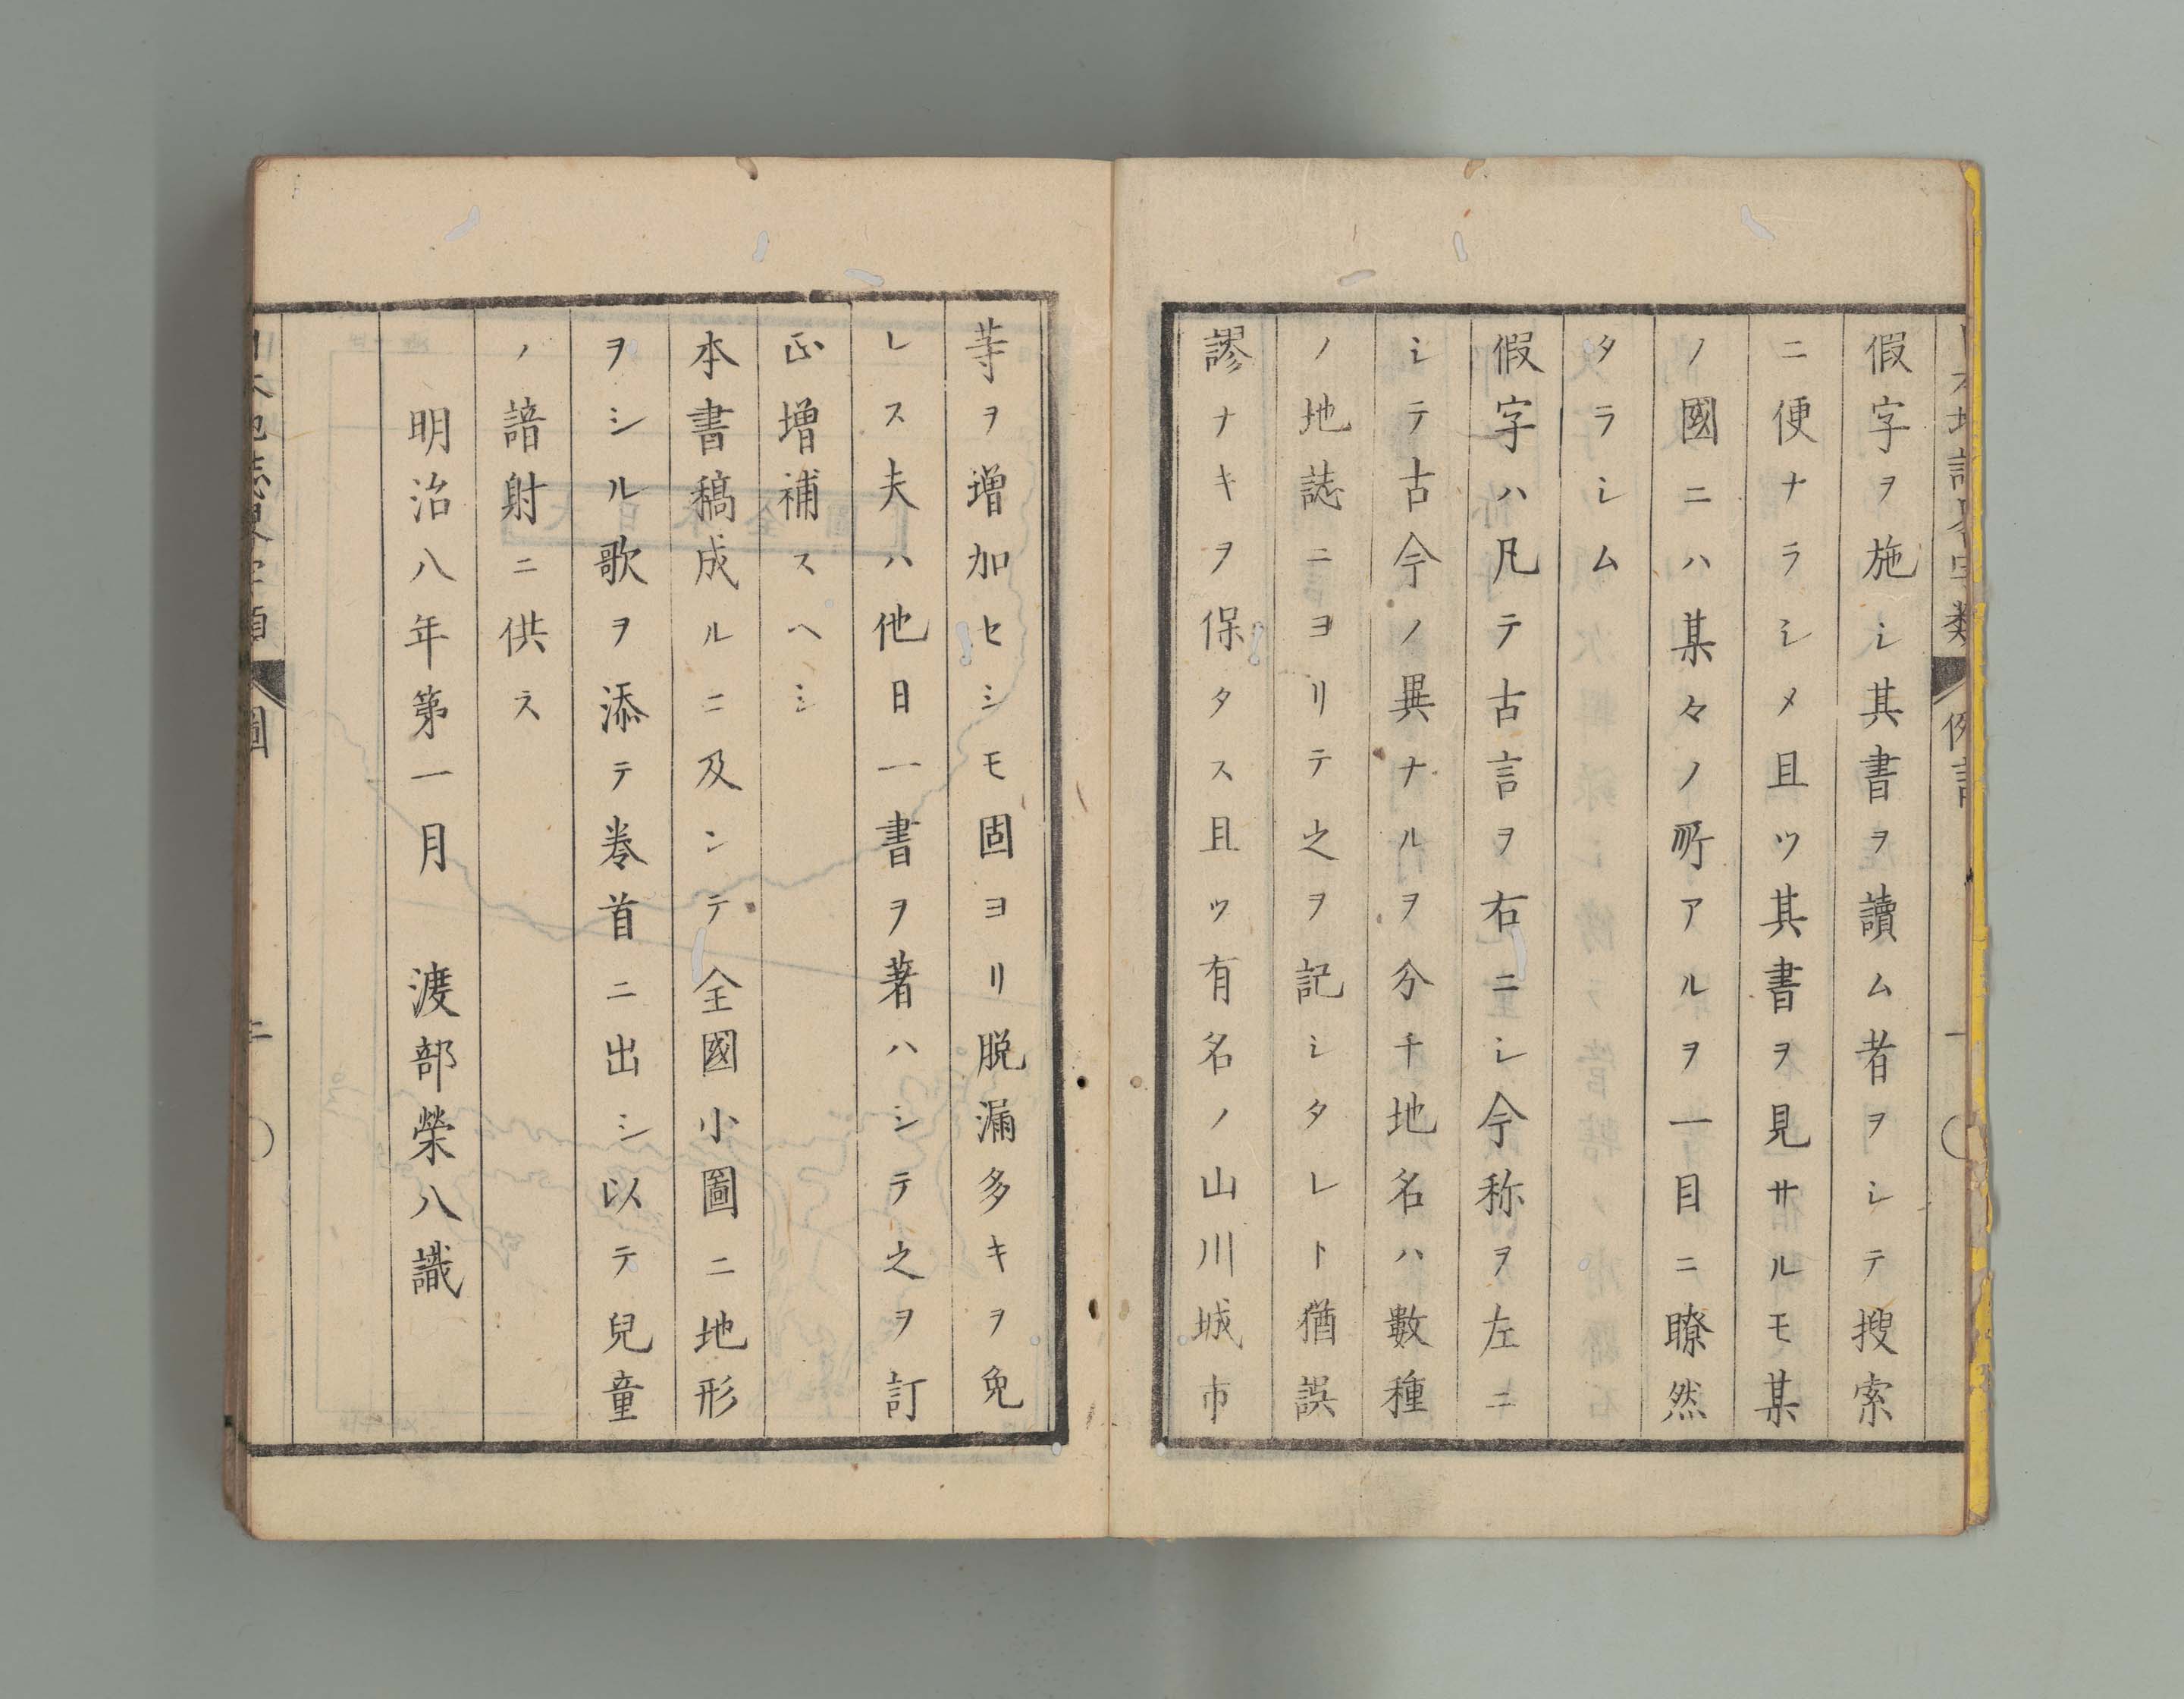 假字ヲ施シ其書ヲ讀ム者ヲシテ搜索
ニ便ナラシメ且ツ其書ヲ見サルモ某
ノ國ニハ某々ノ所アルヲ一目ニ瞭然
タラシム
假字ハ凡テ古言ヲ右ニシ今称ヲ左ニ
シテ古今ノ異ナルヲ分チ地名ハ數種
ノ地誌ニヨリテ之ヲ記シタレト猶誤
謬ナキヲ保タス且ツ有名ノ山川城市
等ヲ増加セシモ固ヨリ脱漏多キヲ免
レス夫ハ他日一書ヲ著ハシテ之ヲ訂
正増補スヘシ
本書稿成ルニ及ンテ全國小圖ニ地形
ヲシル歌ヲ添テ巻首ニ出シ以テ兒童
ノ諳射ニ供ス
明治八年第一月 渡部榮八識